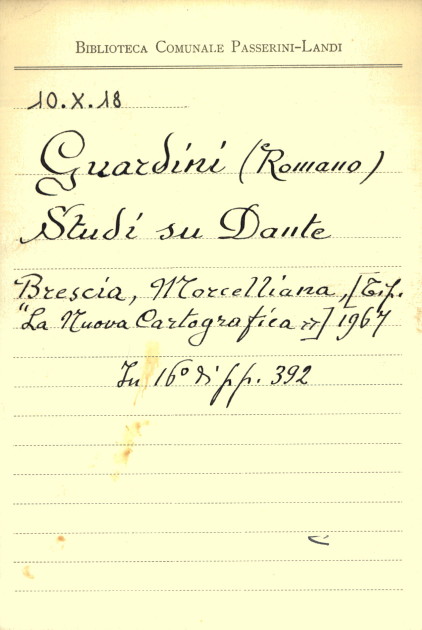 BIBLIOTECA COMUNALE PASSERINI-LANDI
10.X.18
Guardini (Romano)
Studi su Dante
Brescia, Morcelliana, [Tip.
"La Nuova Cartografica"] 1967
In 16° di pp. 392